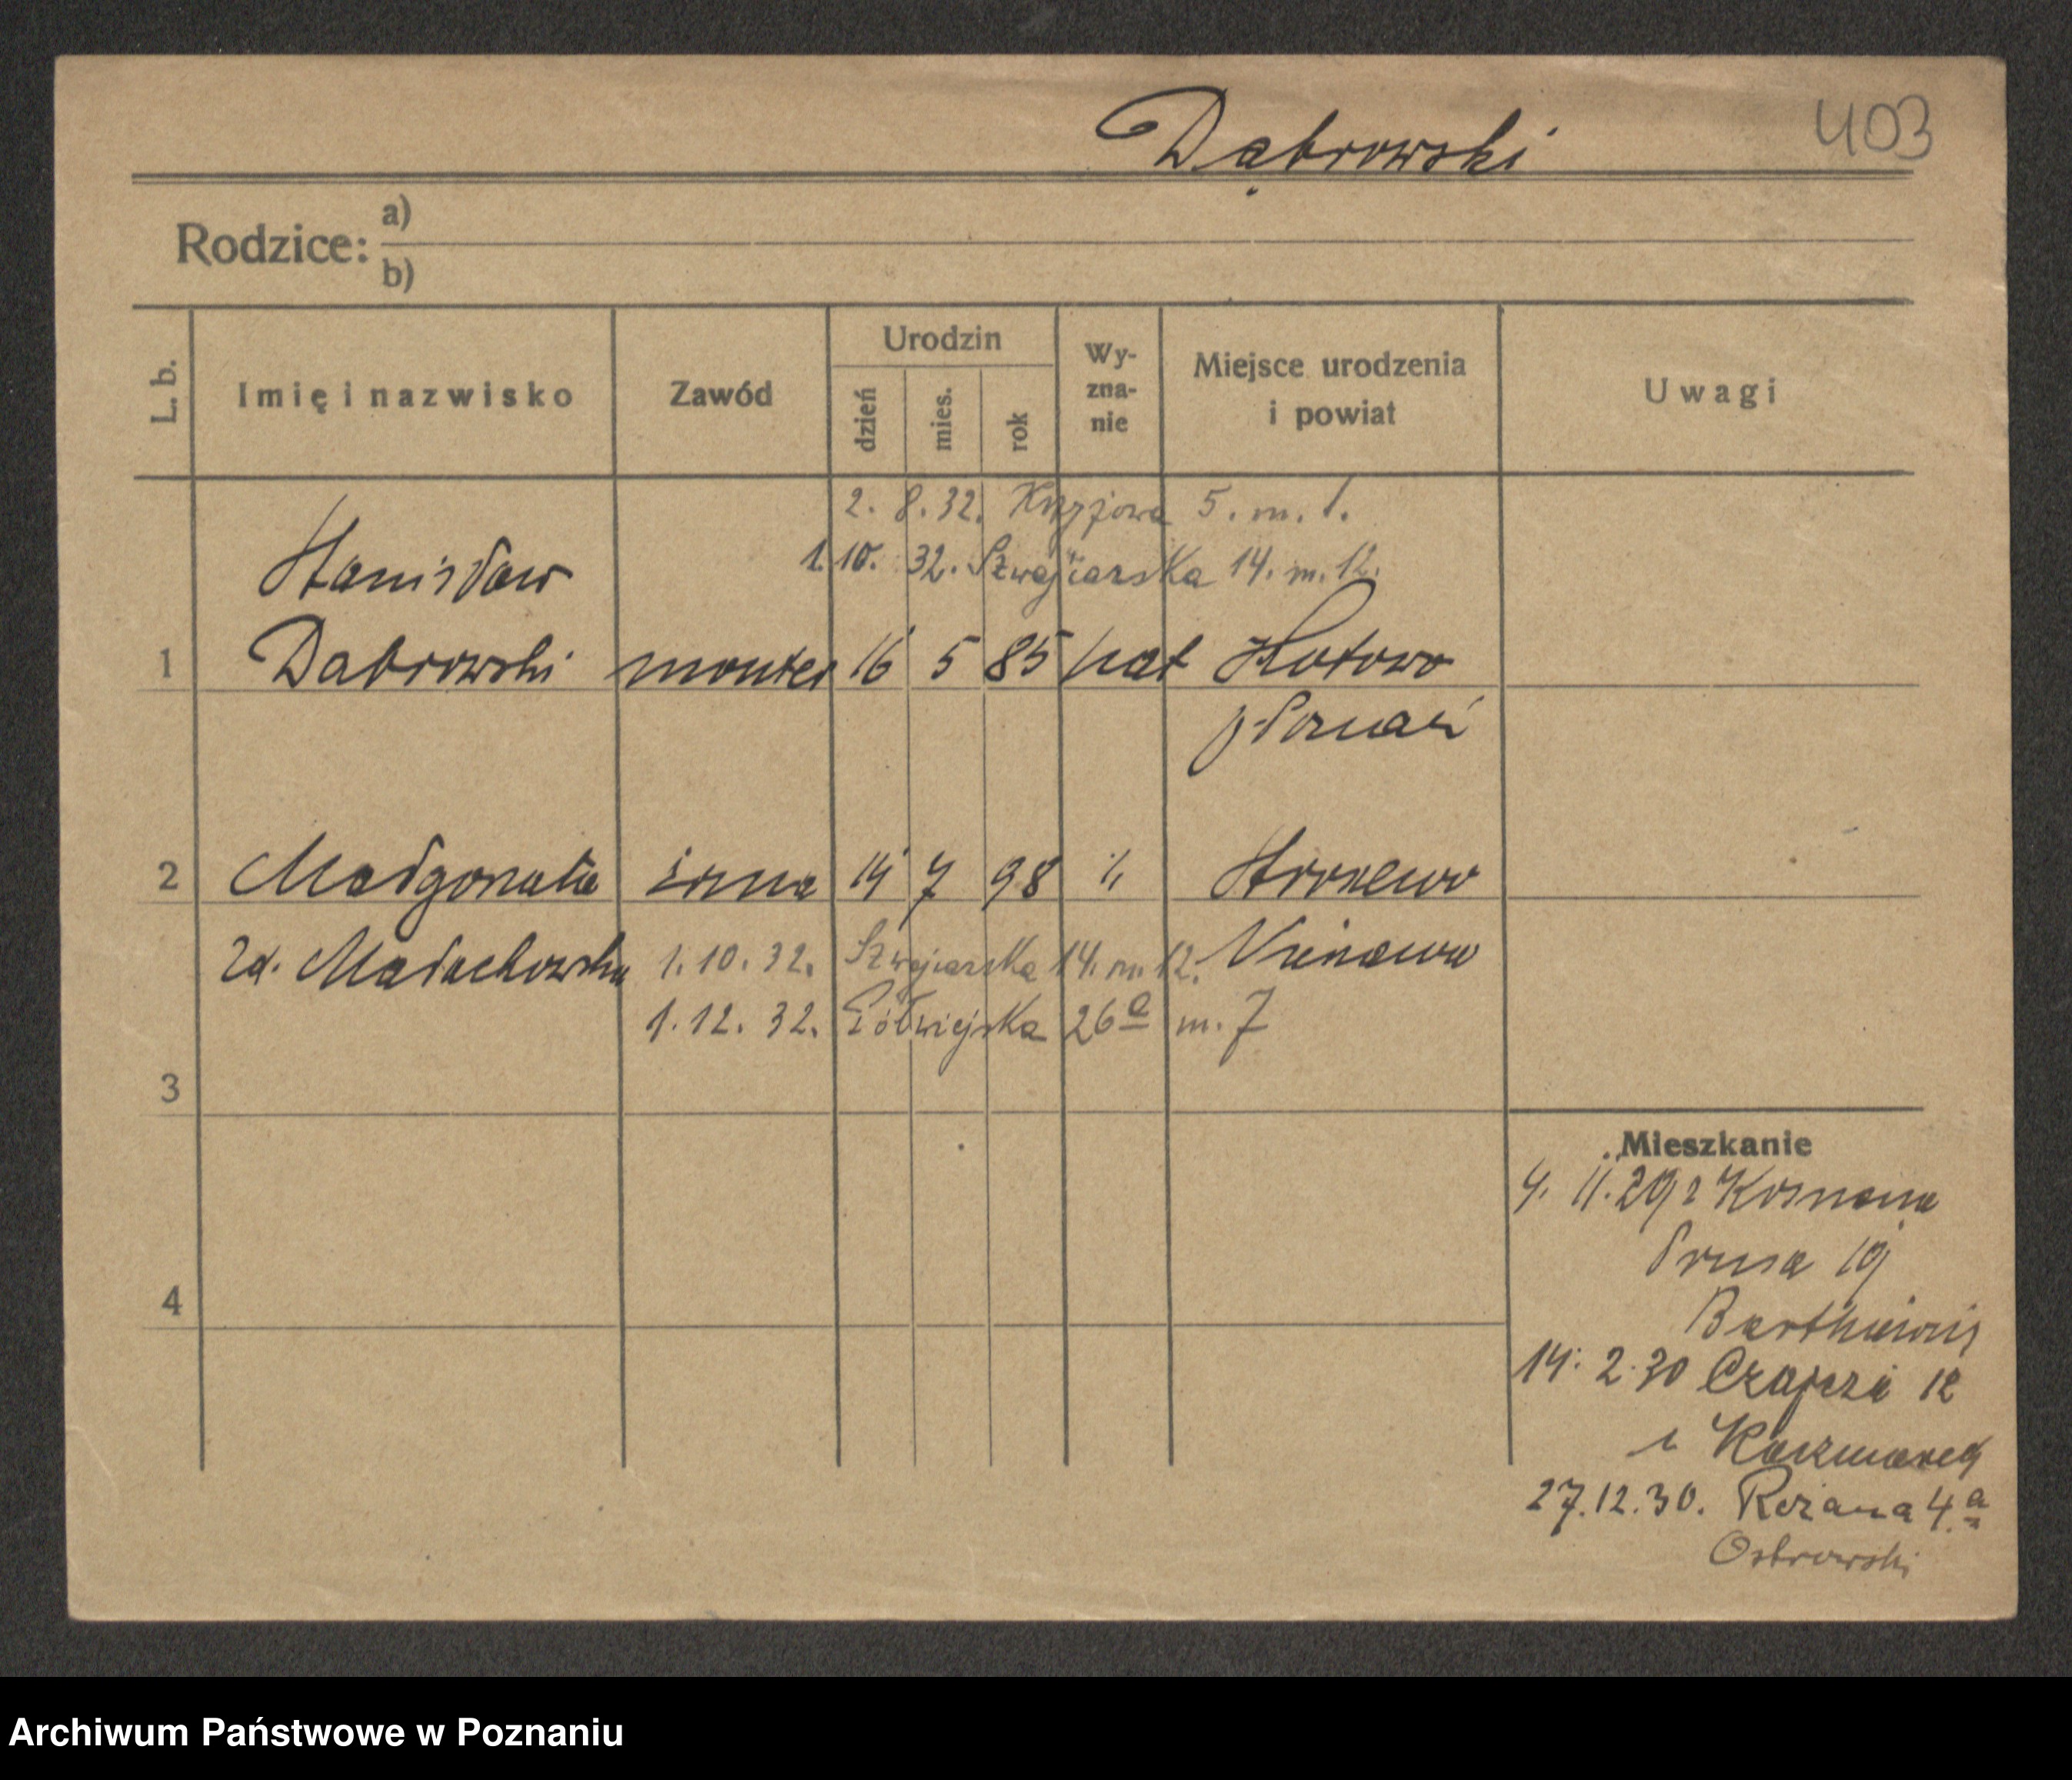 Dąbrowski
403
Rodzice:
a)
b)
L. b.
Imię i nazwisko
Zawód
Urodzin
dzień
mies.
rok
Wy-
zna-
nie
Miejsce urodzenia
i powiat
Uwagi
2. 8. 32. Krzyżowa 5. m. 1.
1. 10. 32. Szwajcarska 14. m. 12.
Stanisław
1 Dabrowski monter 16 5 85 kat
p. Poznań
2 Małgorzata żona 14 7 98
zd. Małachowska
1. 10. 32. Szwajcarska 14. m. 12.
1. 12. 32. Półwiejska 26a m. 7
3
4
Mieszkanie
Prusa 19
14. 2. 30 Czajcza 12
Kaczmarek
27. 12. 30. Różana 4a
Ostrowski
Archiwum Państwowe w Poznaniu